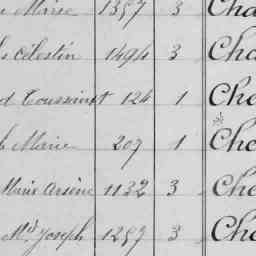 Marie 1357 3 Cha
Célestin 1494 3 Cha
d Toussaint 124 1 Che
Marie 207 1 Che
Marie Arsène 1132 3 Che
Md Joseph 1297 3 Che